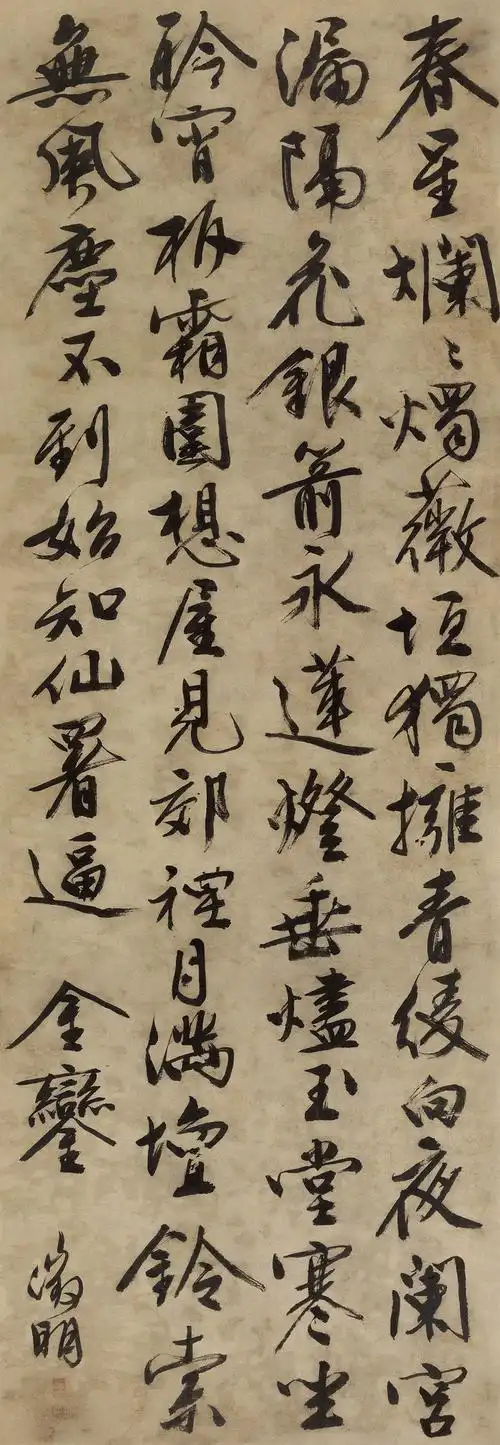 春星爛〻燭薇垣獨擁青綾向夜闌宮
漏隔花銀箭永蓮燈垂燼玉堂寒坐
聆宵柝霜園想屋見郊禋月滿壇鈴索
無風塵不到始知仙署逼 金鑾
徵明